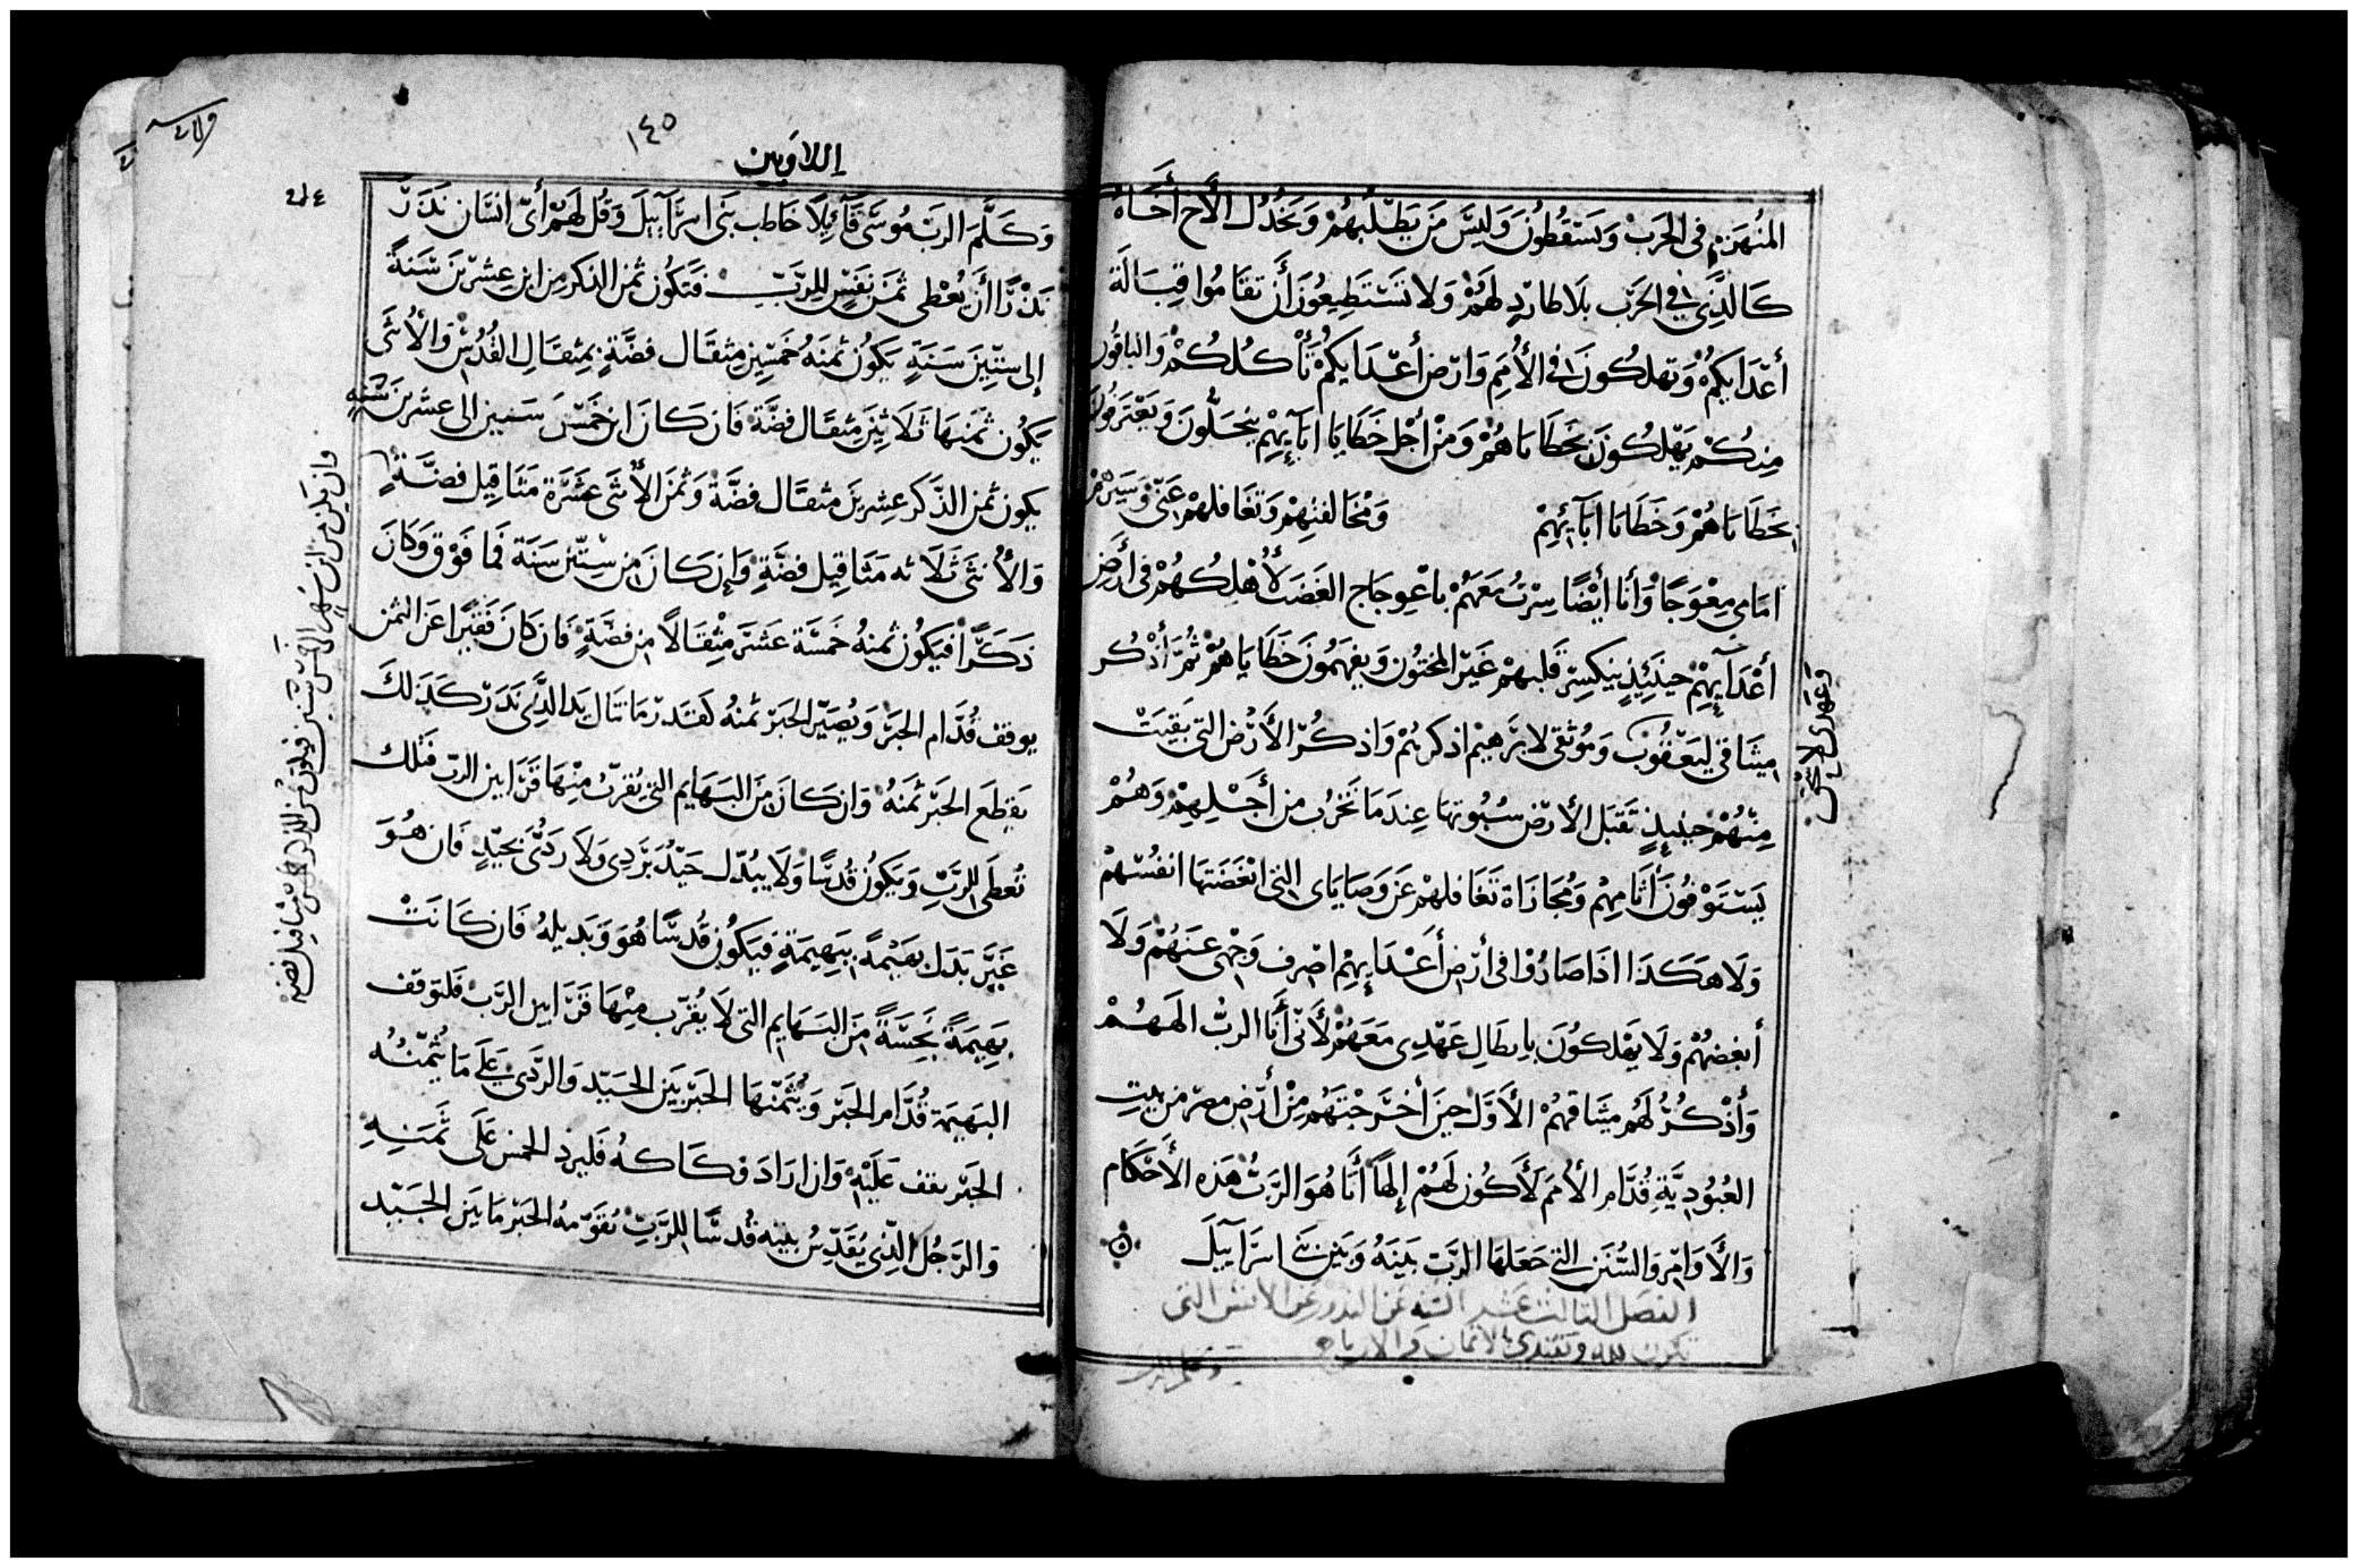 المُنهَزِم فى الحَربْ وَيَسَتقُطُونَ وَلَيسَّ مَن يَطلُبهُمْ وَيَخدُل الأَح أَخَاهُ
كَالذَّى فى الحَرّب بلَا طارّدٍ لهَمُْ وَلا تسَتَطِيعُونَ أَن تقَامُوا قِبَالَة
أعْدَايكمُْ وَتهلكُونَ فى الأُمَمِ وَارّض أعْدَايكُمْ تَأكُلكُمْ وَالباقُون
مِنكُمْ يَهْلكُونَ بخَطَاياهُمْ وَمنْ أَجْل خَطَايَا ابَآيهِمْ يَنحَلُّونَ وَيَعْتَرفونَ
بخَطَاياهُمْ وَخَطَايا ابَآئِهِمْ وَمُخَالفتِهِمْ وَتغَافلهمْ عَنىّ وَسَيرهم
امَامى مِعْوَجًا وَأَنا أَيْضًا سِرْتُ مَعَهَمُْ باعْوِجَاج الغَضَب لأُهْلكهُمْ فى أَرَضِ
أعْدَآيهِمْ حينَئِذٍ ينكسِر قَلبهمْ غَيَر المختُون وَيفهَمُونَ خَطَايَاهُمْ ثُمَّ أَذْكُر
ميثَاقى ليَعْقُوبْ وَمُوثقى لابرَّهيْم اذكرهُمْ وَاذكُرّ الأَرّض التى بَقيَتْ
مِنهُمْ حينيذٍ تَقبَل الأرّض سُبُوتهَا عِندَمَا تَخرُب من أَجْلهِمْ وَهُمْ
يَسْتَوْفُونَ أَثَامِهِمْ وَمُجَازَاة تَغَافلهمْ عَن وَصَايَاى التى ابْغَضَتهَا انفُسّهُمْ
وَلَا هَكَذَا اذَا صَارُوْا فى أَرّض أَعْدَايهِمْ اصْرف وَجْهى عنَهُمْ وَلَا
أبغضهُمْ وَلَا يَهْلكوُنَ بابطَالِ عَهْدِى مَعَهمُْ لأَنىّ أَنَا الربُّ الهَهُمْ
وَأَذْكُرُّ لهَمُ ميثَاقهُمْ الأَوَّل حينَ أَخرَجْتَهُم مِنْ أَرّض مصرّ من بيتِ
العُبُودِيَّةِ قُدَّام الأمَم لأَكُون لَهُمْ إلهًا أَنَا هُوَ الرَّبُّ هَذه الأَحْكَام
وَالأَوَامِّر وَالسُّنَن التى جَعَلهَا الرَّبّ بَينَهُ وَبَيَن بَنى اسرَآييلَ
الفصَل الثالث عَشر السُنه عَن النذور عَن الانفس التى
تكون لله وتفتدى بالاثمان
اللاوَيين
١٤٥
وَكَلَّمَ الربّ مُوسَّى قَآئِلًا خاطب بَنى اسرَآييلَ وَقُل لهَمُّ أَىّ انسَان نَذَرَ
نَذْرًا أَن يُعْطى ثمَن نفَسٍ لِلربّ فتَكُون ثمن الذكر مِن ابن عِشرّينَ سَنةً
إلى سِتّينَ سَنَةٍ يَكوُن ثمَنَهُ خَمسّين مِثقَال فضَّةٍ بمِثقَالِ القُدُسّ وَالأُنثَى
يَكوُن ثمَنهَا ثَلاثينَ مِثقَال فضَّة فَان كَانَ ابن خَمْسّ سَنين الى عشرينَ سَنَةٍ
يكون ثمن الذَّكر عِشرينَ مثقَال فضَّة وَثمنَ الأُنثَى عَشَرَة مَثَاقِيل فضَّةٍ
وَالأُنثَى ثَلَاثه مَثَاقِيل فضَّةٍ وَإن كَانَ مِن سِتّين سَنَة فَمَا فَوْق وَكَانَ
ذَكَرًّا فيَكوُن ثمنهُ خَمسَّة عَشَرَ مِثْقَالًا مِن فضَّةٍ فَان كانَ فَقيرًا عَن الثمن
يوقف قُدَّام الحَبر وَيُصَيّر الحَبر ثمنهُ كقَدر مَا تنَال يَد الذَّى نَذَرّ كَذَلكَ
يَقطَع الحَبر ثمَنَهُ وَان كَانَ مَنَ البَهَايم التى يُقرَّب مِنْهَا قَرَّابين الربّ فتلك
تُعطَى للرَّبّ وَيَكوُن قُدسًّا وَلَا يبُدّل جَيّدُ برَّدِى وَلَا رَدُّى بجَيّدٍ فَان هُوَ
غَيَّر بَدَل بهَيْمَةً ببهِيمَةٍ فَيكَوُن قُدسًّا هُوَ وَبَديلهُ فَان كَانَتْ
بَهِيمَةً نجَسَّةً مَنَ البَهَايم التى لَا يُقرَّب مِنْهَا قَرَّابين الرَّبّ فلتوَقف
البَهَيمة قُدَّام الحَبر وَيُثمّنَهَا الحَبر بَيَن الجَيّد وَالرَّدَى عَلَى مَا يثُمّنُه
الحَبر يقف عَلَيْهِ وَان ارَادَ فكَاكهُ فليزد الخمس عَلَى ثَمَنِهِ
وَالرَجُل الذَّى يُقَدّسُ بيَته قُدسًّا للرَّبّ يُقَوّمهُ الحَبر مَا بَيَن الجَيّد
وان يكن من ابن شهر الى خمسّ سَنين فيكون ثمن الذكر خمس مثاقيل فضه